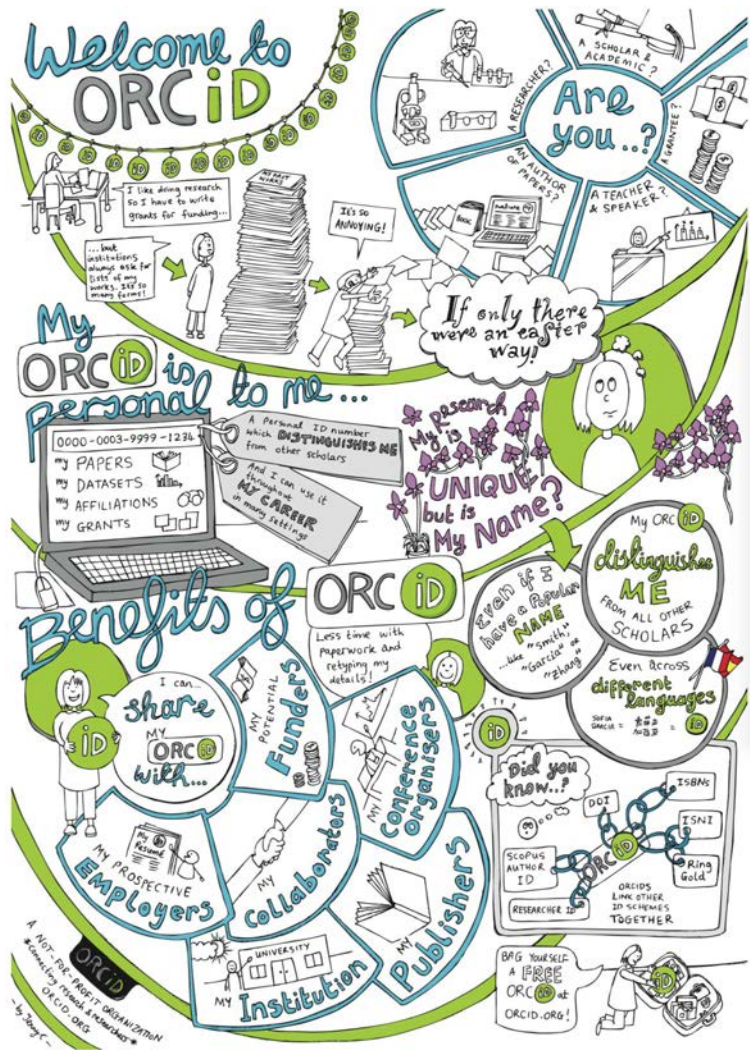 Welcome to
ORCiD
Are
you..?
A RESEARCHER?
A SCHOLAR &
ACADEMIC?
A GRANTEE?
A TEACHER
& SPEAKER?
AN AUTHOR
OF PAPERS?
BOOK
nature
I like doing research
so I have to write
grants for funding...
...but
institutions
always ask for
lists of my
works. It's so
many forms!
MY PAST
WORKS
IT'S SO
ANNOYING!
If only there
were an easier
way!
My
ORCiD is
personal to me...
0000-0003-9999-1234
my PAPERS
my DATASETS
my AFFILIATIONS
my GRANTS
A personal ID number
which DISTINGUISHES ME
from other scholars
And I can use it
throughout
MY CAREER
in many settings
My Research
is
UNIQUE
but is
My Name?
My ORCiD
distinguishes
ME
FROM ALL OTHER
SCHOLARS
Even if I
have a Popular
NAME
...like "Smith,"
"Garcia" or
"Zhang"
Even across
different
languages
SOFIA
GARCIA =
= iD
Benefits of
ORCiD
Less time with
paperwork and
retyping my
details!
iD
I can...
share
MY
ORCiD
with...
MY POTENTIAL
Funders
MY
Conference
Organisers
MY PROSPECTIVE
Employers
My
Resumé
MY
Collaborators
MY
Publishers
UNIVERSITY
MY Institution
iD
Did you
know..?
DOI
ISBNs
ISNI
Ring
Gold
SCOPUS
AUTHOR
ID
RESEARCHER ID
ORCiD
ORCIDS
LINK OTHER
ID SCHEMES
TOGETHER
BAG YOURSELF
A FREE
ORCiD at
ORCID.ORG!
iD
ORCiD
A NOT-FOR-PROFIT ORGANIZATION
*connecting research & researchers*
ORCID.ORG
- by Jenny C -